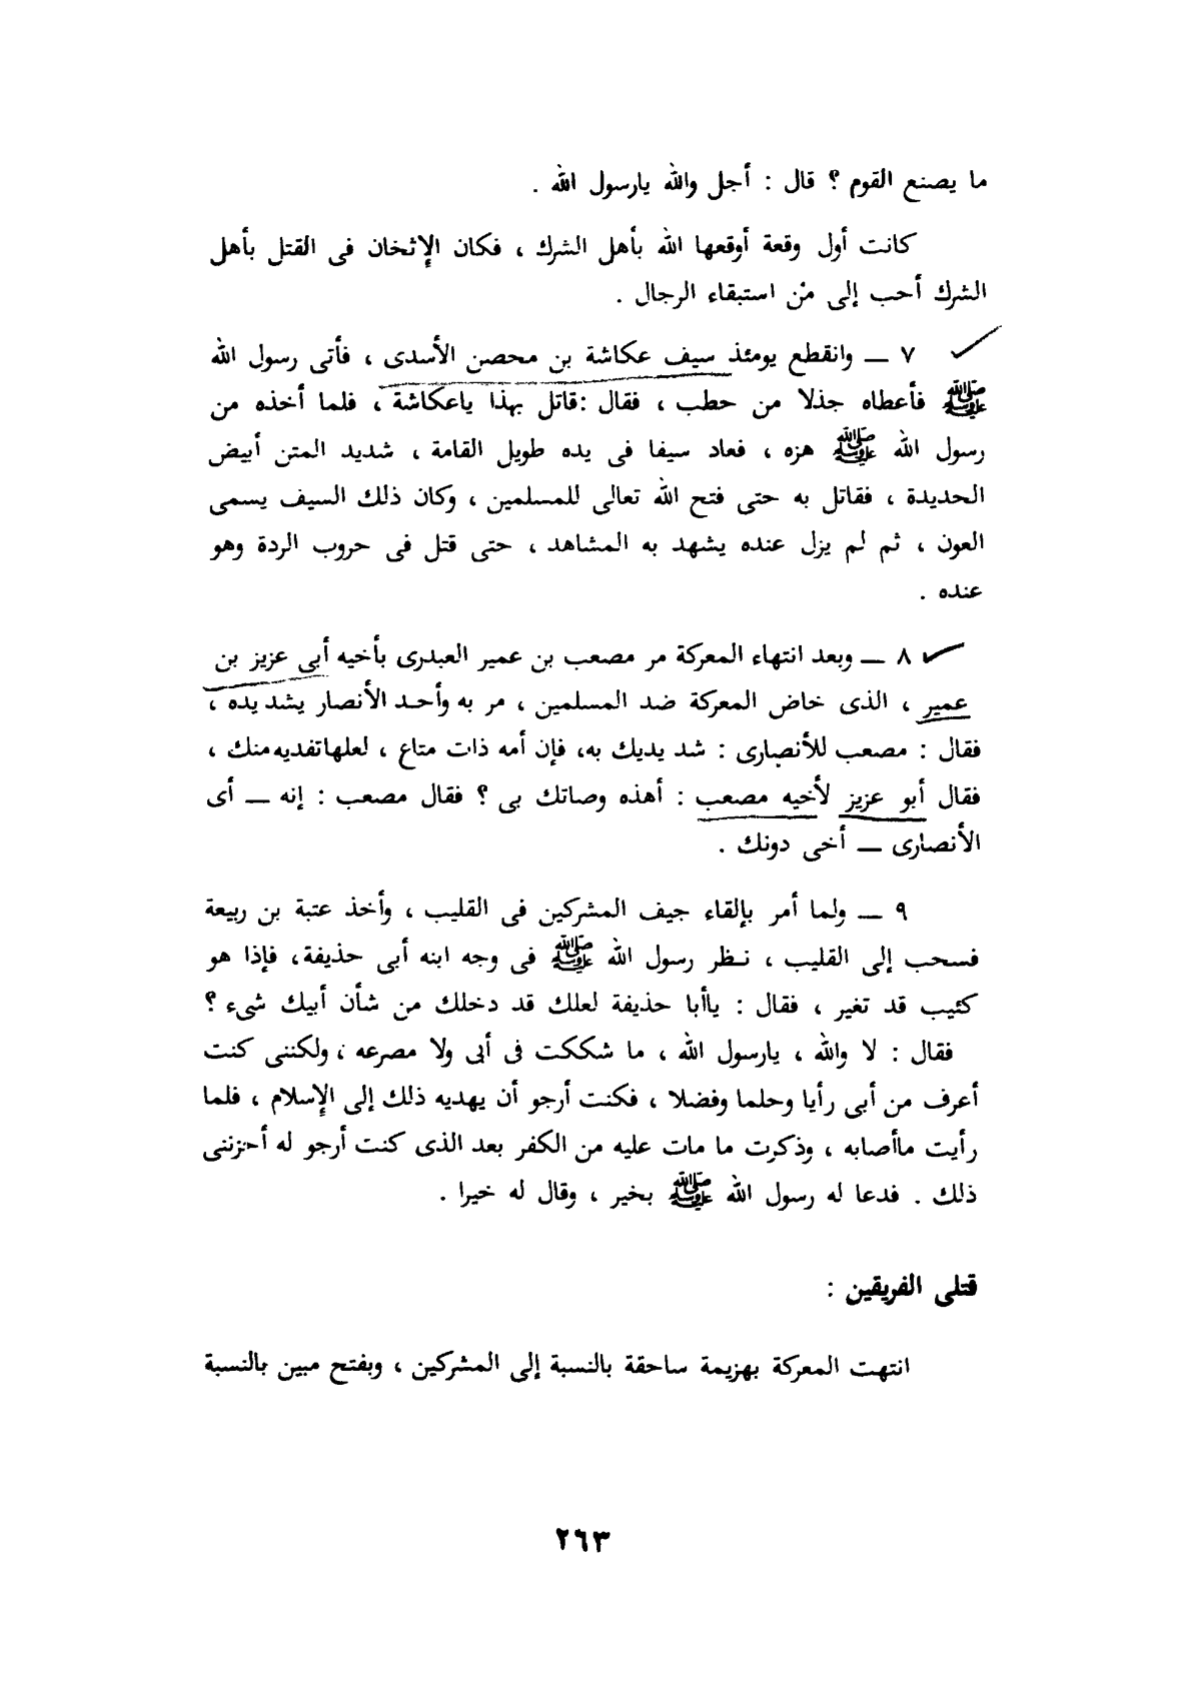 ما يصنع القوم ؟ قال : أجل والله يارسول الله .
كانت أول وقعة أوقعها الله بأهل الشرك ، فكان الإثخان فى القتل بأهل
الشرك أحب إلى من استبقاء الرجال .
٧ ــ وانقطع يومئذ سيف عكاشة بن محصن الأسدى ، فأتى رسول الله
ﷺ فأعطاه جذلا من حطب ، فقال :قاتل بهذا ياعكاشة ، فلما أخذه من
رسول الله ﷺ هزه ، فعاد سيفا فى يده طويل القامة ، شديد المتن أبيض
الحديدة ، فقاتل به حتى فتح الله تعالى للمسلمين ، وكان ذلك السيف يسمى
العون ، ثم لم يزل عنده يشهد به المشاهد ، حتى قتل فى حروب الردة وهو
عنده .
٨ ــ وبعد انتهاء المعركة مر مصعب بن عمير العبدرى بأخيه أبى عزيز بن
عمير ، الذى خاض المعركة ضد المسلمين ، مر به وأحد الأنصار يشد يده ،
فقال : مصعب للأنصارى : شد يديك به، فإن أمه ذات متاع ، لعلها تفديه منك ،
فقال أبو عزيز لأخيه مصعب : أهذه وصاتك بى ؟ فقال مصعب : إنه ــ أى
الأنصارى ــ أخى دونك .
٩ ــ ولما أمر بإلقاء جيف المشركين فى القليب ، وأخذ عتبة بن ربيعة
فسحب إلى القليب ، نظر رسول الله ﷺ فى وجه ابنه أبى حذيفة، فإذا هو
كئيب قد تغير ، فقال : ياأبا حذيفة لعلك قد دخلك من شأن أبيك شىء ؟
فقال : لا والله ، يارسول الله ، ما شككت فى أبى ولا مصرعه ، ولكننى كنت
أعرف من أبى رأيا وحلما وفضلا ، فكنت أرجو أن يهديه ذلك إلى الإسلام ، فلما
رأيت ماأصابه ، وذكرت ما مات عليه من الكفر بعد الذى كنت أرجو له أحزننى
ذلك . فدعا له رسول الله ﷺ بخير ، وقال له خيرا .
قتلى الفريقين :
انتهت المعركة بهزيمة ساحقة بالنسبة إلى المشركين ، وبفتح مبين بالنسبة
٢٦٣